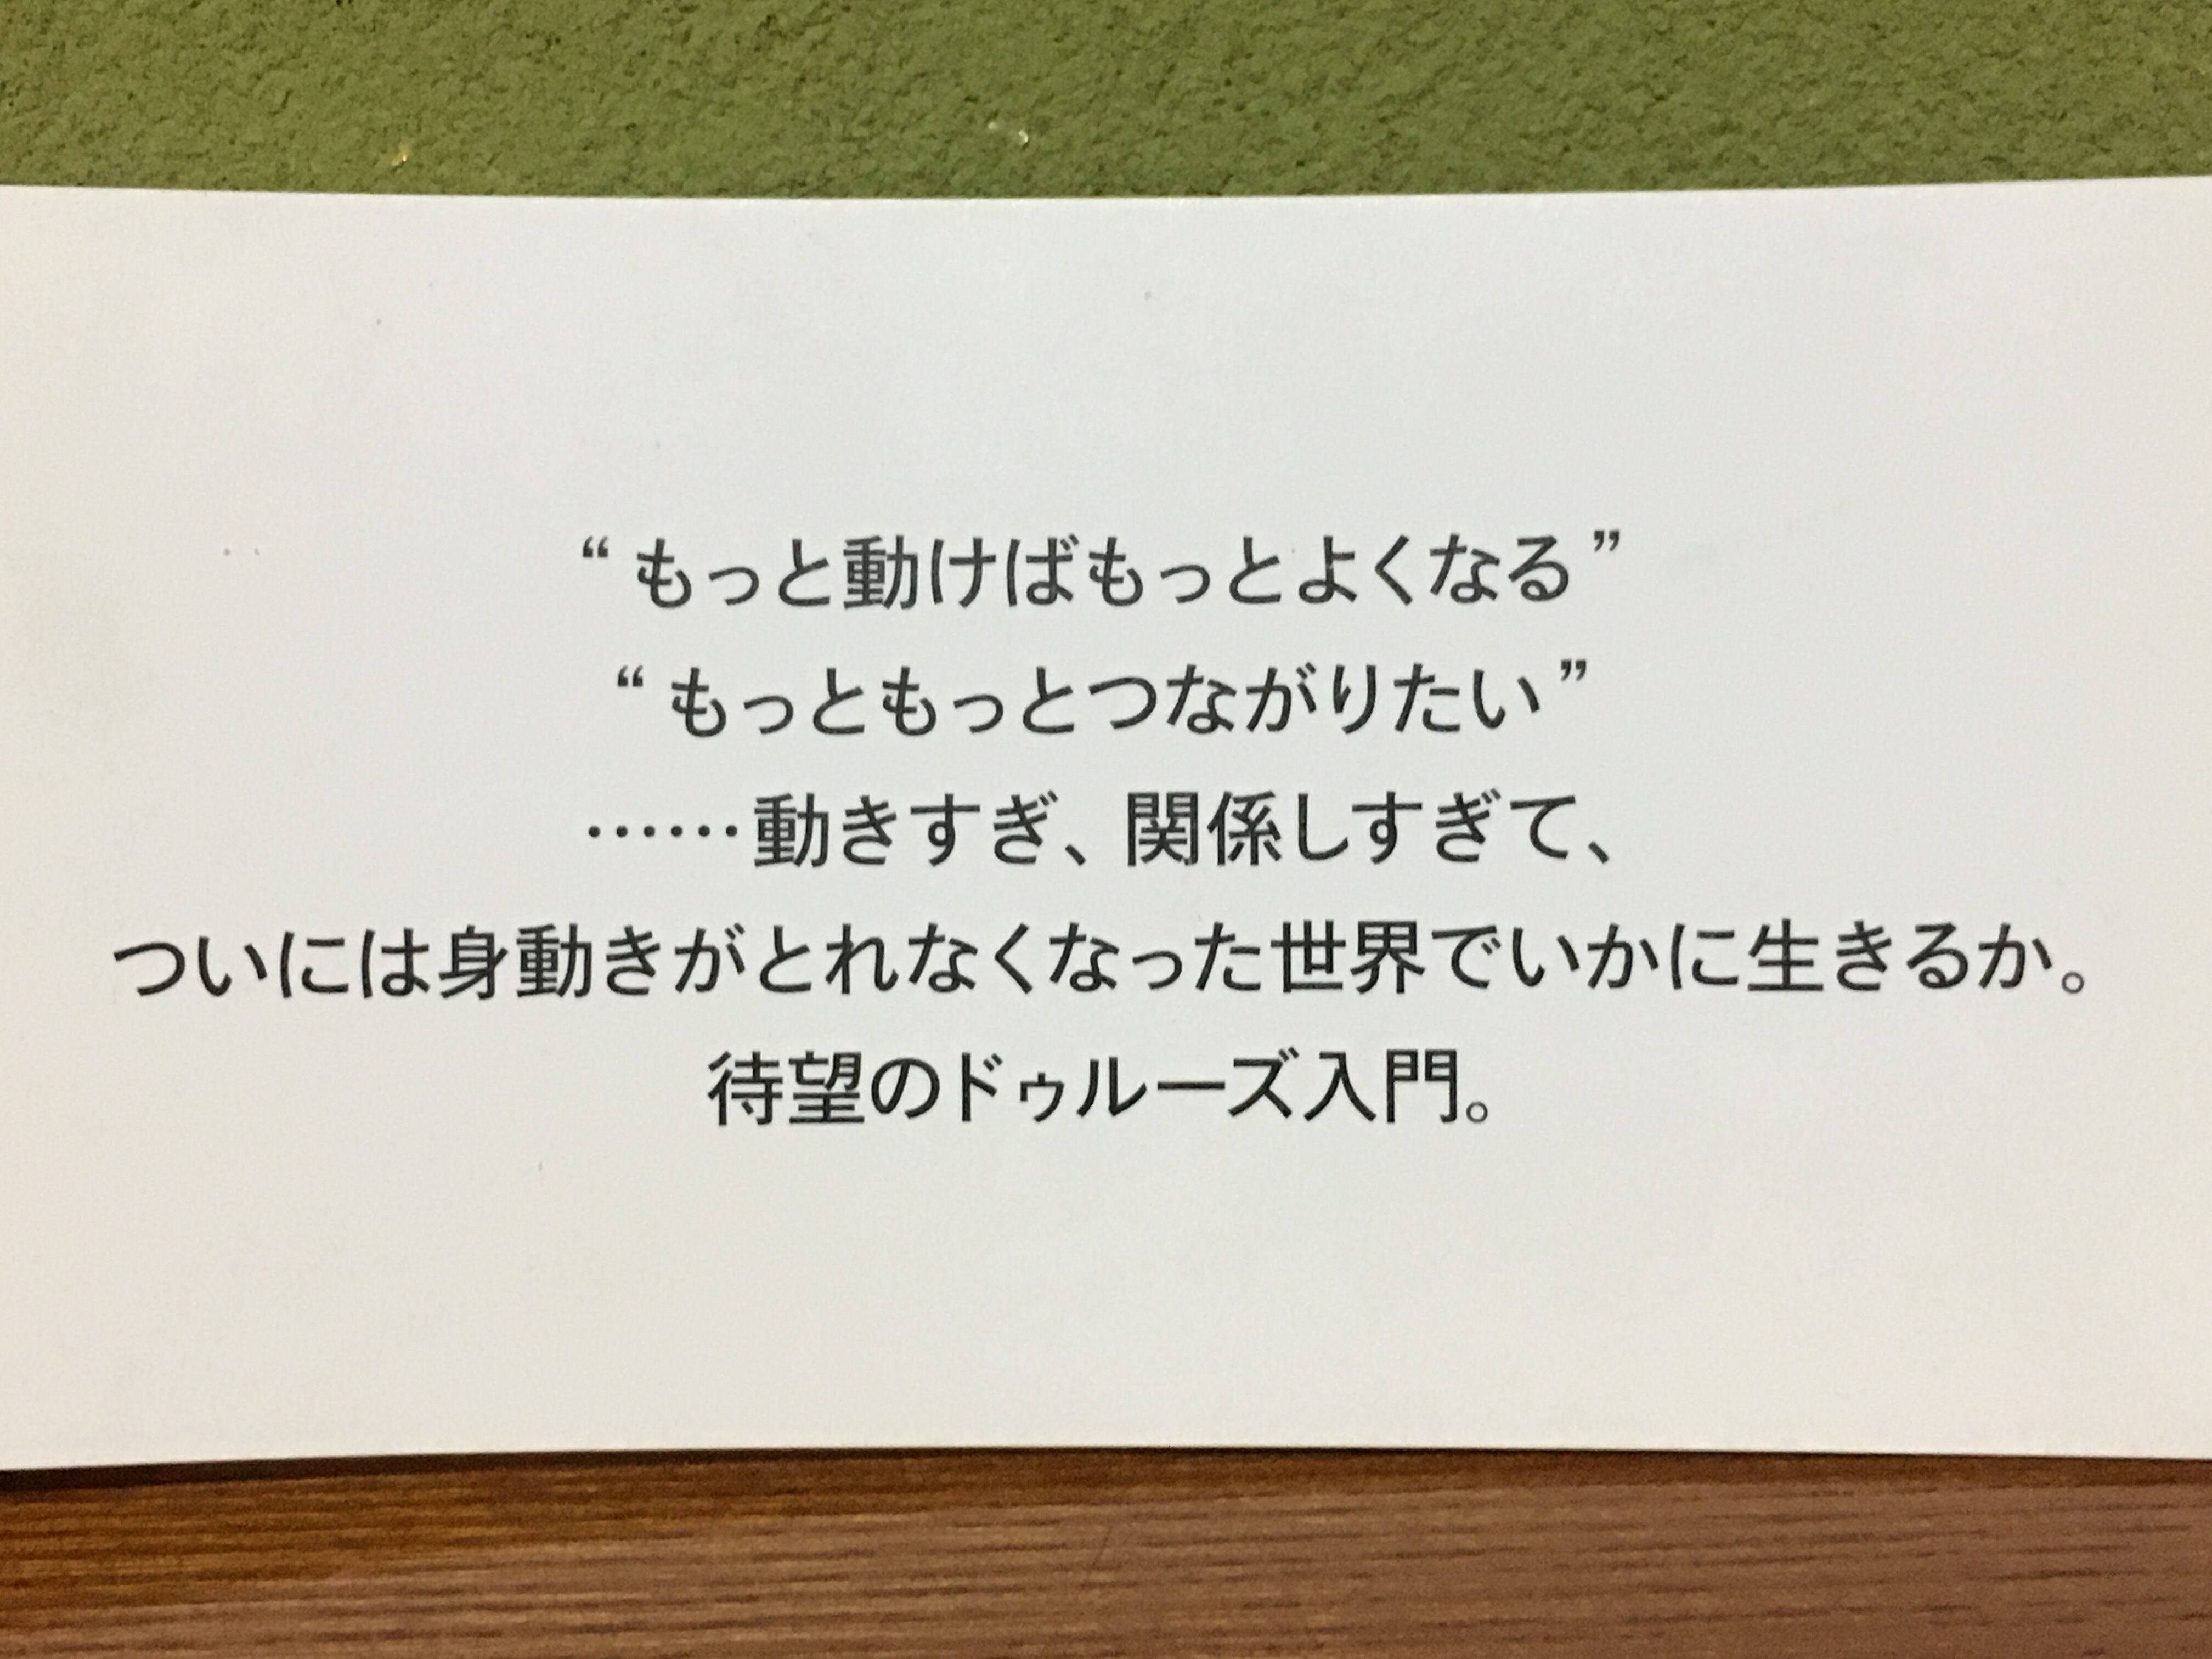 “もっと動けばもっとよくなる”
“もっともっとつながりたい”
……動きすぎ、関係しすぎて、
ついには身動きがとれなくなった世界でいかに生きるか。
待望のドゥルーズ入門。